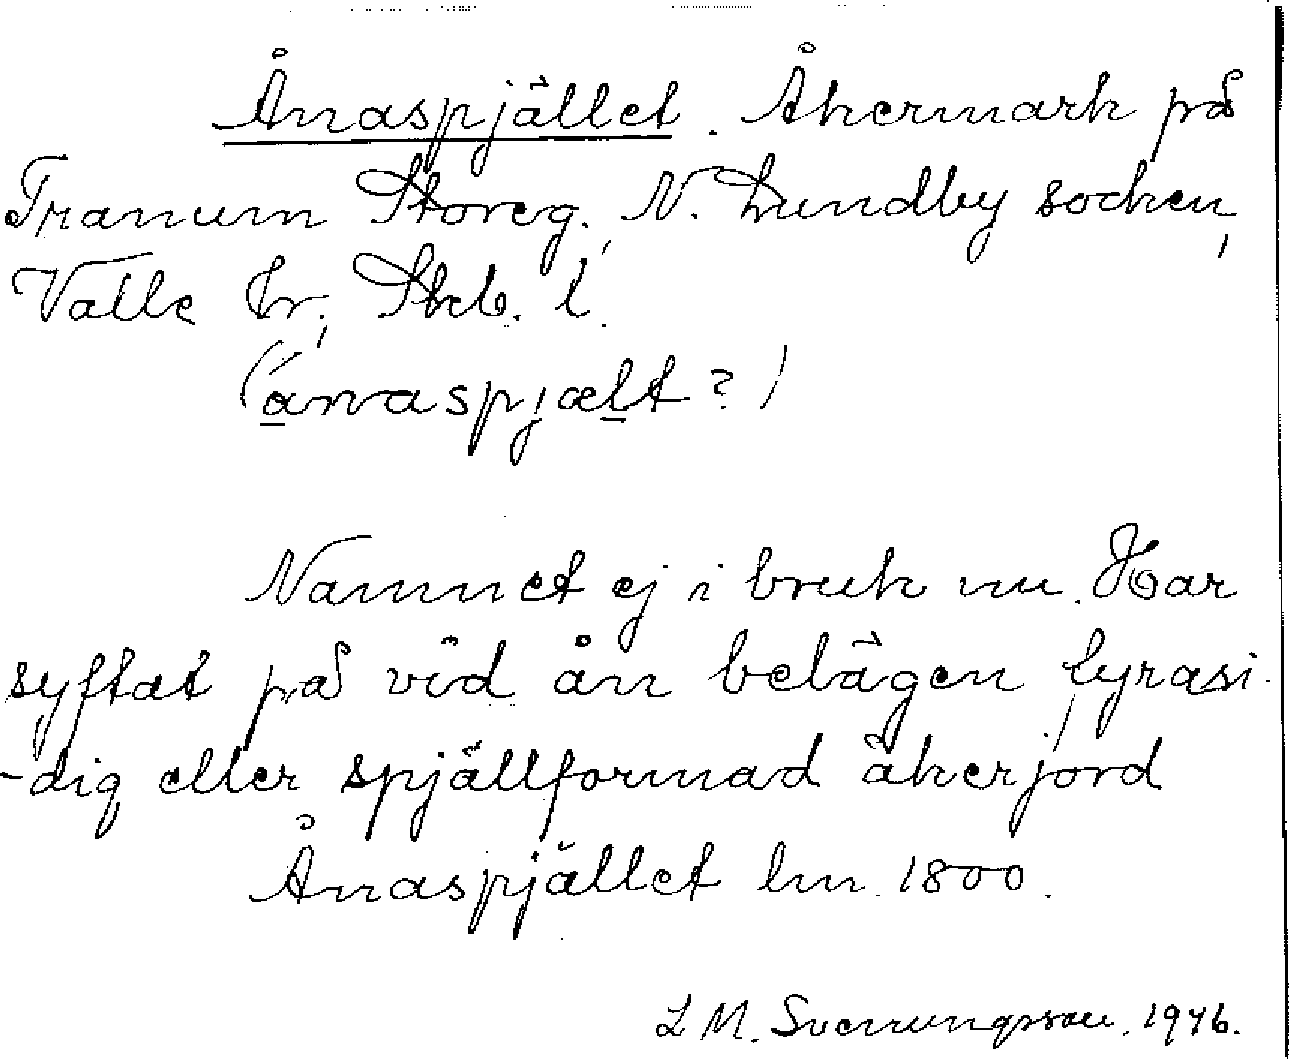 Ånaspjället. Åkermark på
Tranum Storeg., N. Lundby socken,
Valle hr, Skb. l.
(ånaspjælt?)
Namnet ej i bruk nu. Har
syftat på vid ån belägen fyrasi-
-dig eller spjällformad åkerjord
Ånaspjället lm. 1800.
L M. Sverrungsson. 1946.